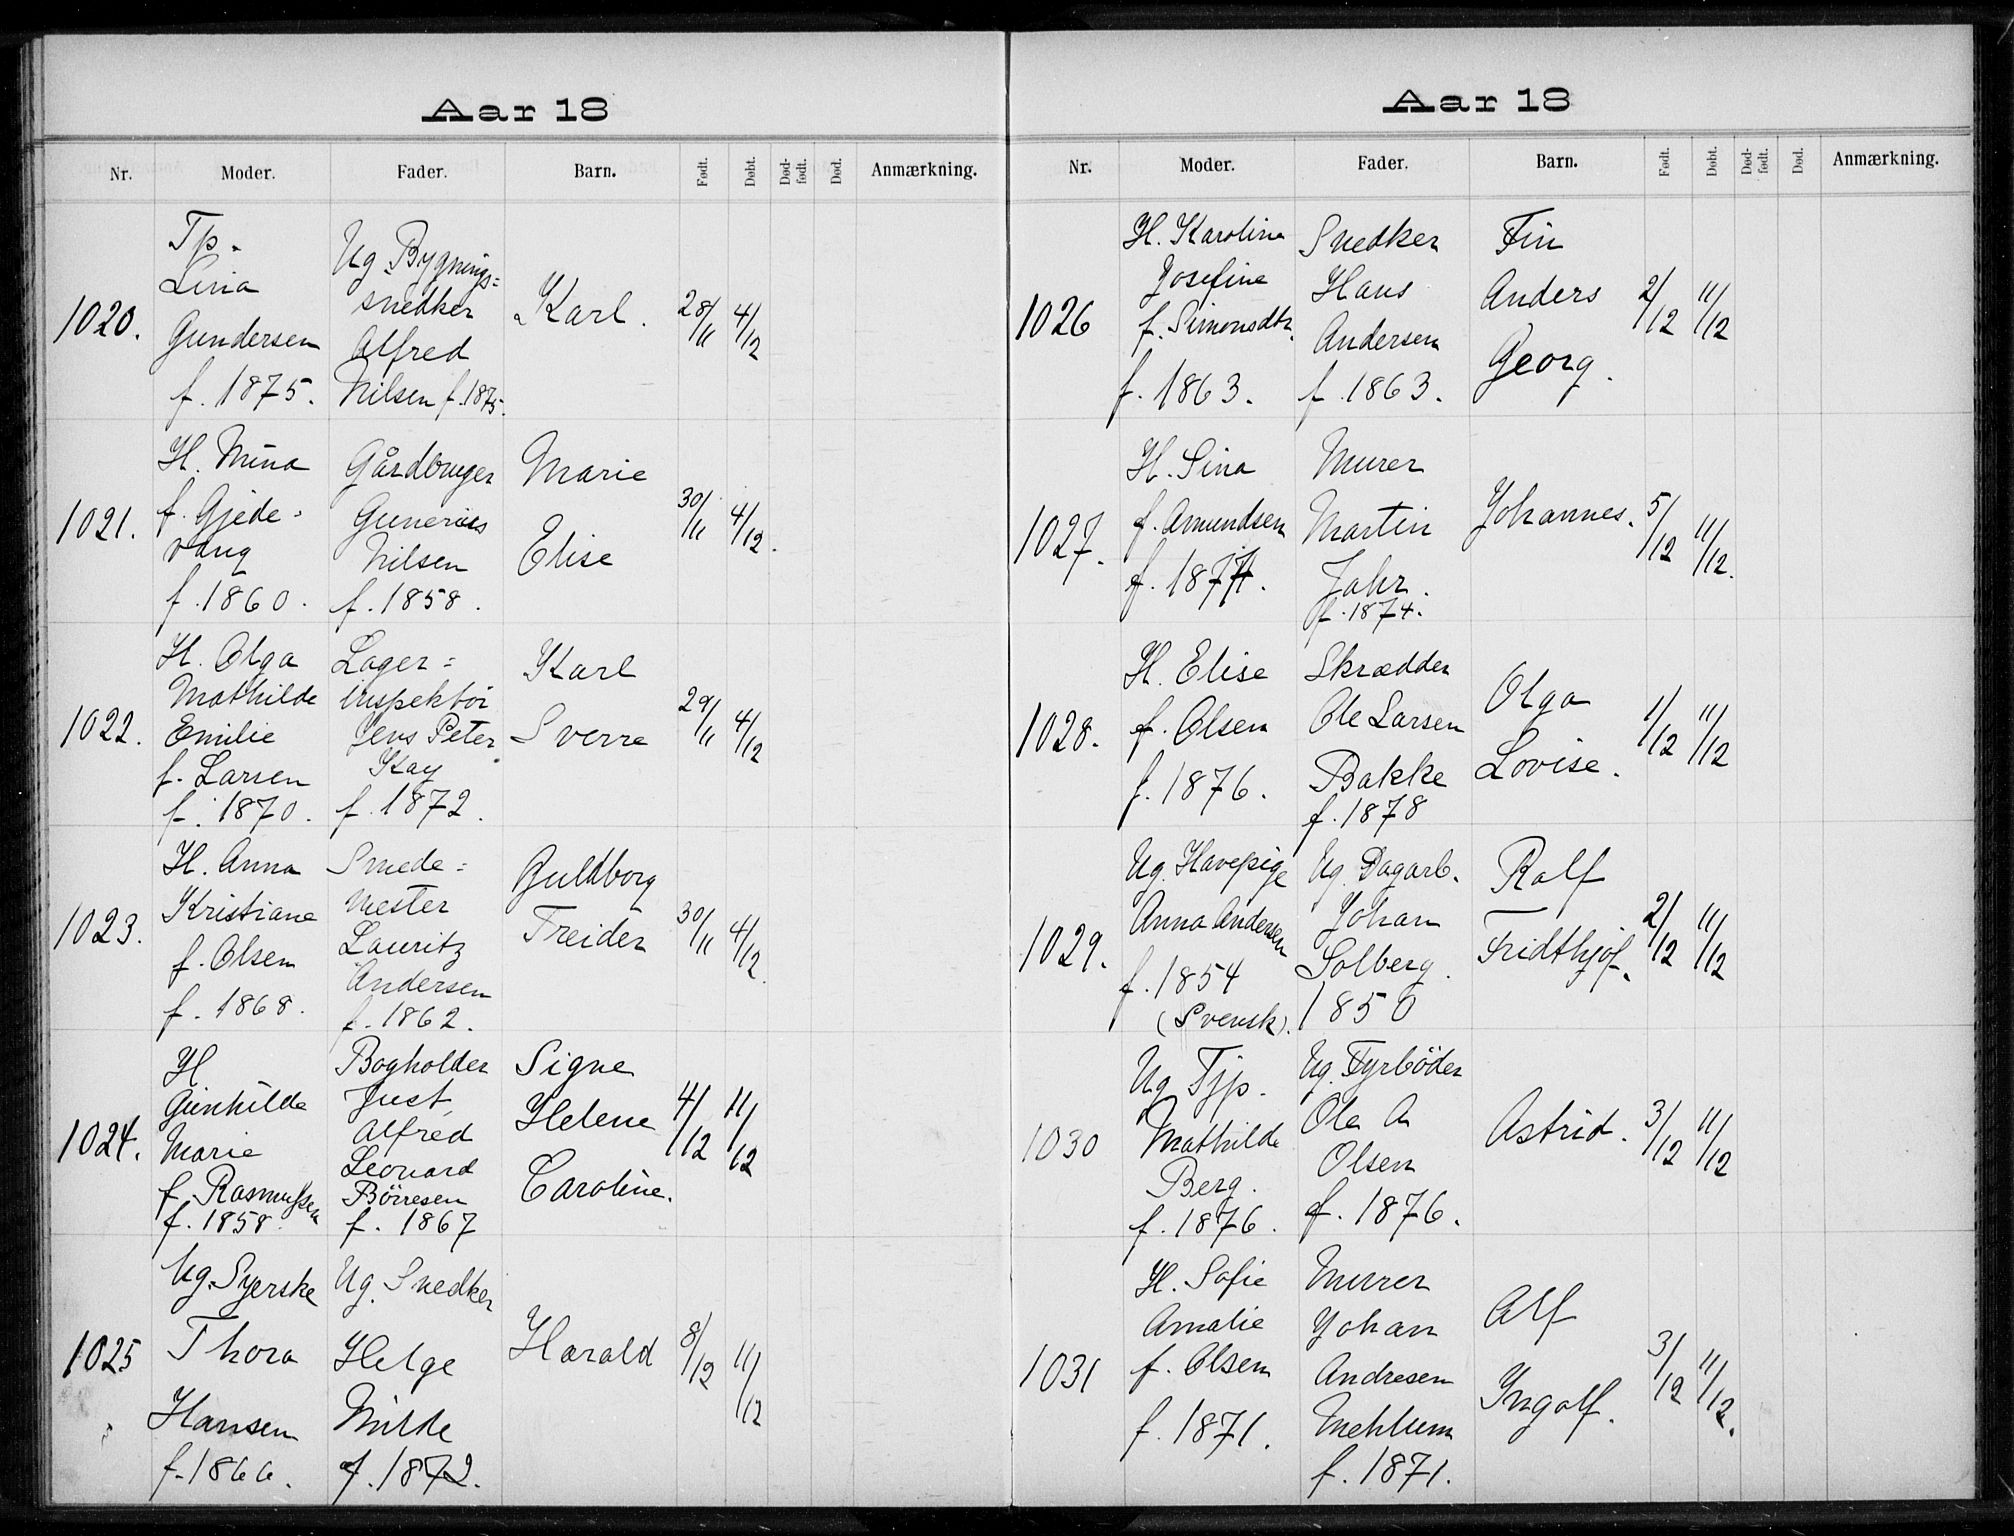 Aar 18
Nr. Moder. Fader. Barn. Født. Døbt. Død-født. Død. Anmærkning.
1020.
Tp.
Lina
Gundersen
f. 1875.
Ug. Bygnings=
snedker
Alfred
Nilsen f. 1875.
Karl.
28/11 4/12
1021.
H. Mina
f. Gjede-
vang
f. 1860.
Gårdbruger
Gunerius
Nilsen
f. 1858.
Marie
Elise
30/11 4/12.
1022.
H. Olga
Mathilde
Emilie
f. Larsen
f. 1870.
Lager=
inspektör
Jens Peter
Kay
f. 1872.
Karl
Sverre
29/11 4/12
1023.
H. Anna
Kristiane
f. Olsen
f. 1868.
Smede=
mester
Lauritz
Andersen
f. 1862.
Guldborg
Treider
30/11 4/12.
1024.
H
Gunhilda
Marie
f. Rasmussen
f. 1858.
Bogholder
Just
Alfred
Leonard
Börresen
f. 1867
Signe
Helene
Caroline.
4/12 11/12
1025
Ug. Syerske
Thora
Hansen
f. 1866.
Ug. Snedker
Helge
Milde
f. 1872.
Harald
8/12 11/12
Aar 18
Nr. Moder. Fader. Barn. Født. Døbt. Død-født. Død. Anmærkning.
1026
H. Karoline
Josefine
f. Simonsdtr.
f. 1863.
Snedker
Hans
Andersen
f. 1863.
Fin
Anders
Georg.
2/12 11/12
1027.
H. Sina
f. Amundsen
f. 1874.
Murer
Martin
Jahr.
f. 1874.
Johannes.
5/12 11/12.
1028.
H. Elise
f. Olsen
f. 1876.
Skrædder
Ole Larsen
Bakke
f. 1878
Olga
Lovise.
1/12 11/12
1029.
Ug. Havepige
Anna Andersen
f. 1854
(Svensk).
Ug. Dagarb.
Johan
Solberg.
1850
Ralf
Fridthjof.
2/12 11/12
1030
Ug. Tjp.
Mathilde
Berg.
f. 1876.
Ug. Fyrböder
Ole A
Olsen
f. 1876.
Astrid.
3/12 11/12
1031
H. Sofie
Amalie
f. Olsen
f. 1871.
Murer
Johan
Andresen
Mehlum
f. 1871.
Alf
Ingolf.
3/12 11/12.